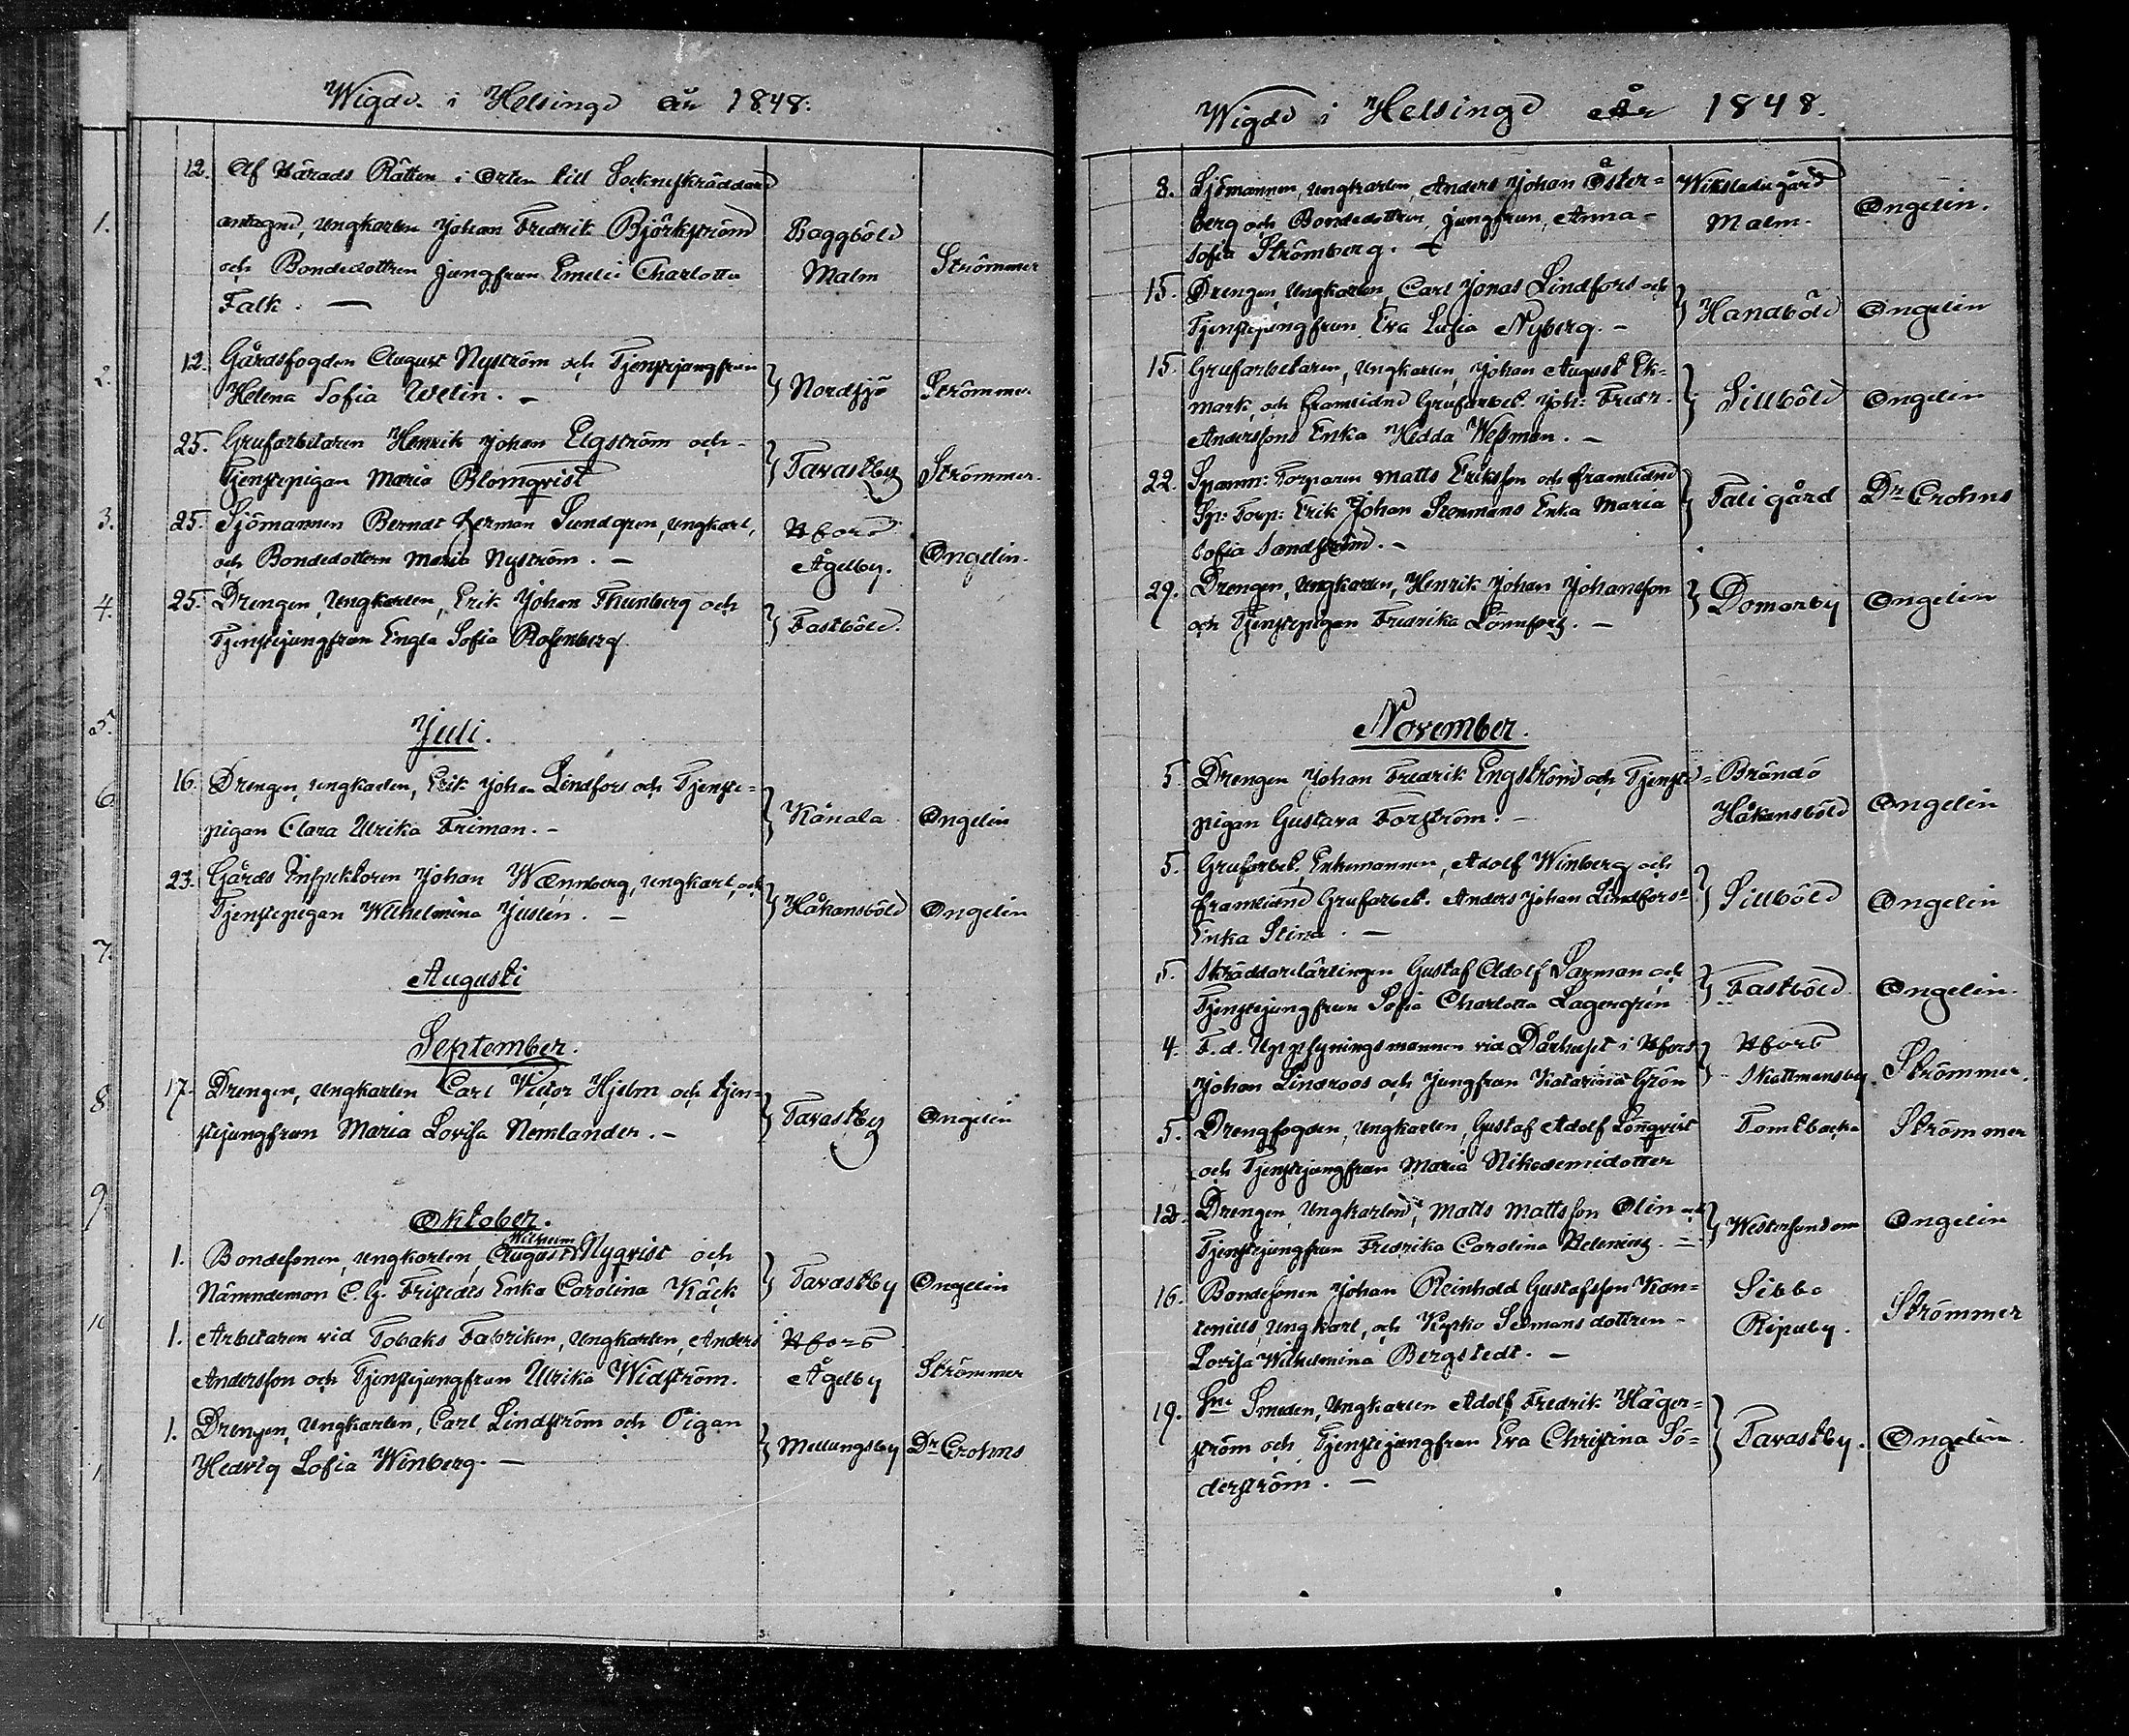 Wigde i Helsinge år 1848.
12. Af Härads Rätten i Orten till Sockneskräddare
1. antagne, Ungkarlen Johan Fredrik Björkström Baggböle
och Bondedottren jungfrun Emelie Charlotta Malm Strömmer
Falk. —
12. Gårdsfogden August Nyström och Tjenstejungfrun
2. Helena Sofia Welin. — } Nordsjö Strömmer
25. Grufarbetaren Henrik Johan Elgström och
Tjenstepigan Maria Blomqvist } Tavastby Strömmer.
3. 25. Sjömannen Berndt Herman Sundgren, ungkarl, Hfors
och Bondedottern Maria Nyström. — Ågelby. Ongelin.
4. 25. Drengen, Ungkarlen, Erik Johan Thunberg och
Tjenstejungfrun Engla Sofia Rosenberg } Fastböle.
5. Juli.
16. Drengen, ungkarlen, Erik Johan Lindfors och Tjenste-
6. pigan Clara Ulrika Friman. — } Kånala Ongelin
23. Gårds Inspektoren Johan Wænnberg, ungkarl, och
Tjenstepigan Wilhelmina Juslén. — } Håkansböle Ongelin
7. Augusti
September.
8. 17. Drengen, Ungkarlen Carl Victor Hjelm och tjen-
stejungfrun Maria Lovisa Nemlander. — } Tavastby Ongelin
9. Oktober.
Wilhelm
1. Bondesonen, ungkarlen, August Nyqvist och
Nämndeman C. G. Friskedes Enka Carolina Käck } Tavastby Ongelin
10 1. Arbetaren vid Tobaks Fabriken, Ungkarlen, Anders Hfors
Andersson och Tjenstejungfrun Ulrika Widström. Ågelby Strömmer
1. Drengen, Ungkarlen, Carl Lindström och Pigan
Hedvig Sofia Winberg. — } Mellungsby Dr Crohns
Wigde i Helsinge År 1848.
8. Sjömannen, ungkarlen, Anders Johan Öster= Wiksladugård
berg och Bondedottren, jungfrun, Anna= Malm. Ongelin.
Sofia Strömberg. —
15. Drengen, Ungkarlen, Carl Jonas Lindfors och
Tjenstejungfrun Eva Lusia Nyberg. — } Handböle Ongelin
15. Grufarbetaren, Ungkarlen, Johan August Ek-
mark, och framlidne Grufarbet. Joh: Fredr. } Sillböle Ongelin
Anderssons Enka Hedda Wessman. —
22. Spanm: Torparen Matts Eriksson och framlidne
Sp: Torp: Erik Johan Stenmans Enka Maria } Tali gård Dr Crohns
Sofia Sandström. —
29. Drengen, Ungkarlen, Henrik Johan Johansson
och Tjenstepigan Fredrika Lönnfors. — } Domarby Ongelin
November.
5 Drengen Johan Fredrik Engström och Tjenste= Brändö
pigan Gustava Forström. — Håkansböle Ongelin
5. Grufarbet. Enkemannen, Adolf Winberg och
framlidne Grufarbet. Anders Johan Lindfors= } Sillböle Ongelin
Enka Stina. —
5. Skräddarelärlingen Gustaf Adolf Saxman och
Tjenstejungfrun Sofia Charlotta Lagergrén } Fastböle Ongelin.
4. F. d. Uppsyningsmannen vid Dårhuset i Hfors Hfors
Johan Lindroos och jungfrun Katarina Grön } Skattmansby Strömmer.
5. Drengfogden, Ungkarlen, Gustaf Adolf Lönqvist Tomtbacka Strömmer
och Tjenstejungfrun Maria Nikodemidotter
12. Drengen, Ungkarlen, Matts Mattsson Olin och
Tjenstejungfrun Fredrika Carolina Helenius. — } Westersundom Ongelin
16. Bondesonen Johan Reinhold Gustafsson Kan= Sibbo
tenius, Ungkarl, och Kyrko Sexmans dottren — Ripuby. Strömmer
Lovisa Wilhelmina Bergstedt. —
19. Smeden, Ungkarlen Adolf Fredrik Häger=
ström och Tjenstejungfrun Eva Christina Sö= } Tavastby. Ongelin.
derström. —